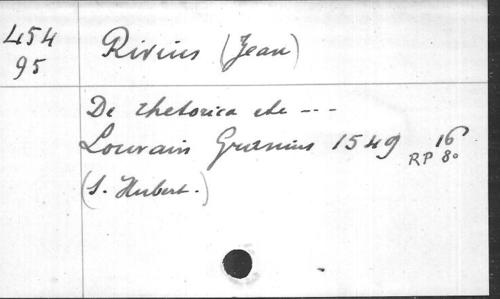 454
95
Rivius (Jean)
De rhetorica etc ---
Louvain Gravius 1549 RP 16
8o
(S. Hubert.)